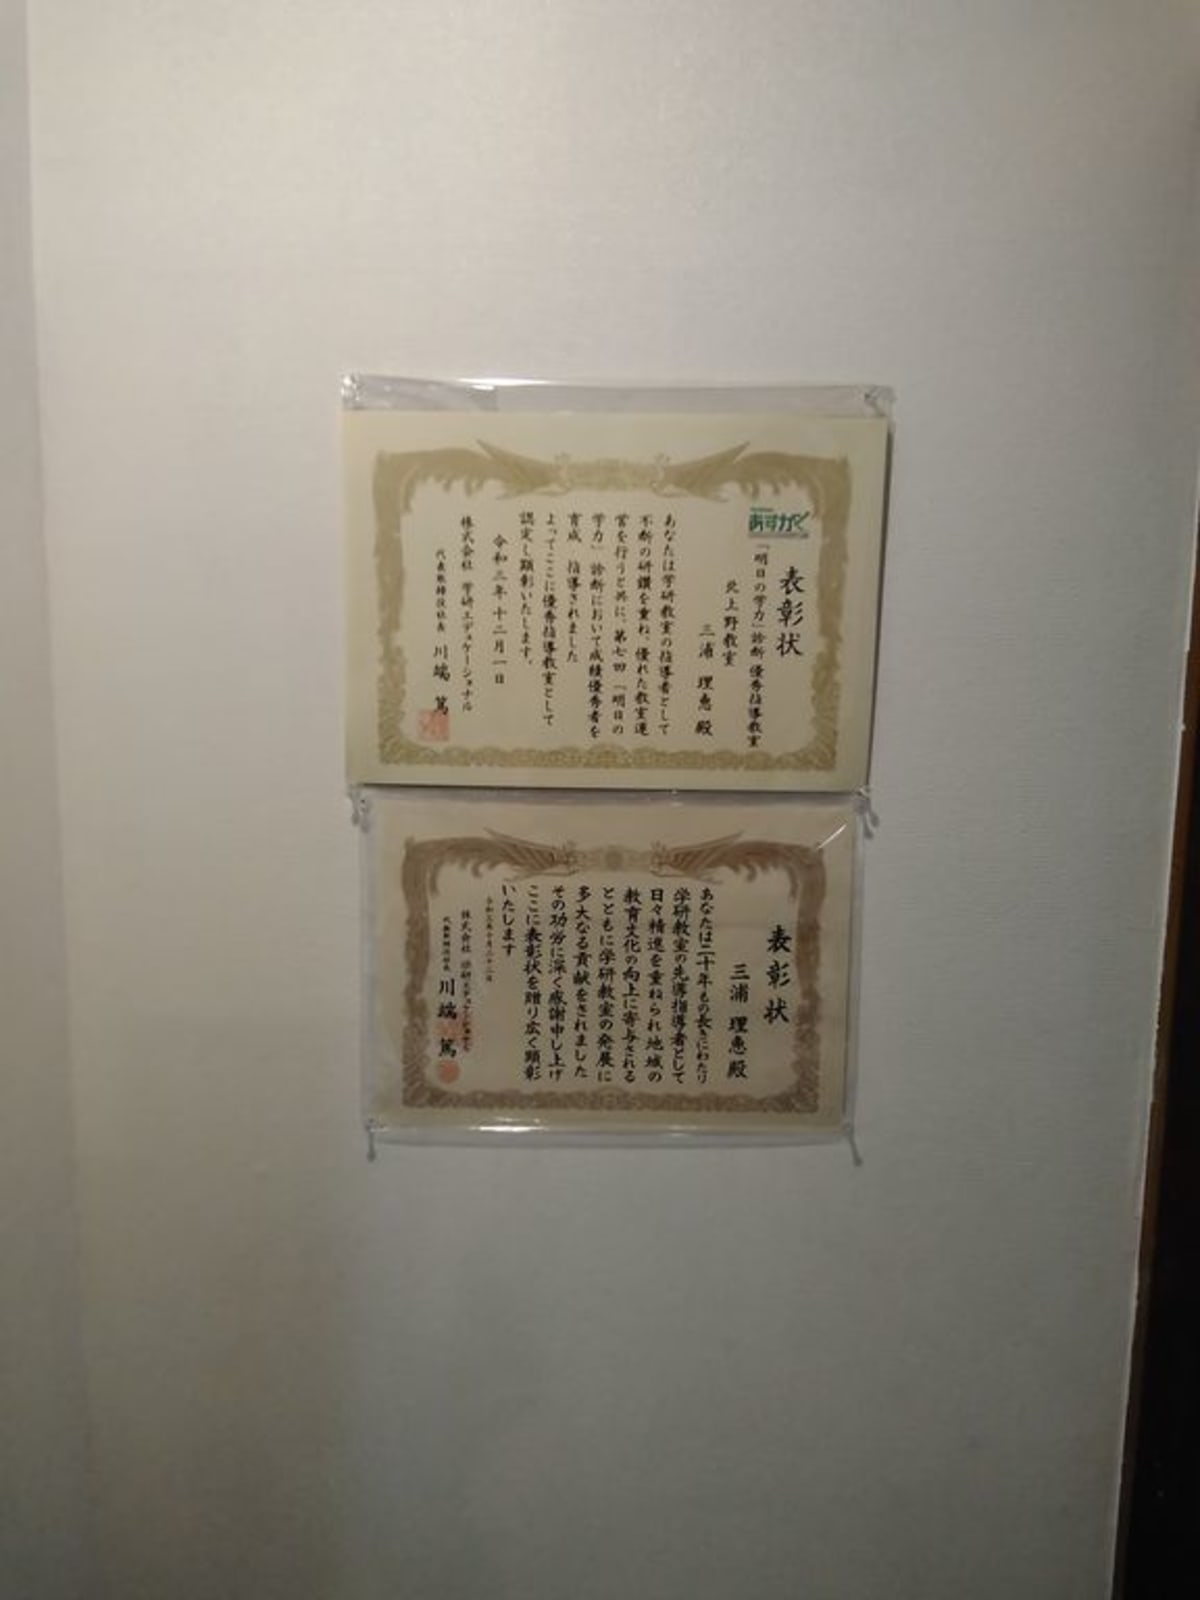 あすかく
表彰状
「明日の学力」診断 優秀指導教室
北上野教室
三浦 理恵 殿
あなたは学研教室の指導者として
不断の研鑽を重ね、優れた教室運
営を行うと共に、第七回「明日の
学力」診断において成績優秀者を
育成 指導されました
よってここに優秀指導教室として
認定し顕彰いたします。
令和三年十二月一日
株式会社 学研エデュケーショナル
代表取締役社長 川端 篤
表彰状
三浦 理恵 殿
あなたは二十年もの長きにわたり
学研教室の先導指導者として
日々精進を重ねられ地域の
教育文化の向上に寄与される
とともに学研教室の発展に
多大なる貢献をされました
その功労に深く感謝申し上げ
ここに表彰状を贈り広く顕彰
いたします
株式会社 学研エデュケーショナル
代表取締役社長 川端 篤